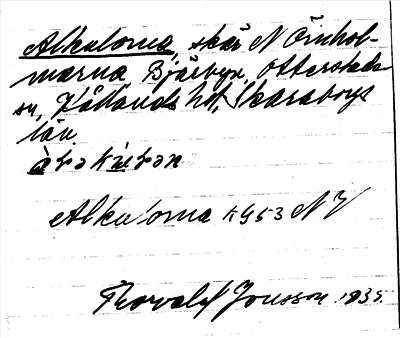 Alkularna, skär N Örnhol-
marna Bjärbyn, Otterstads
sn, Kållands hd, Skaraborgs
län
Alkularna 1953 NV
Thorvald Jonsson 1935.